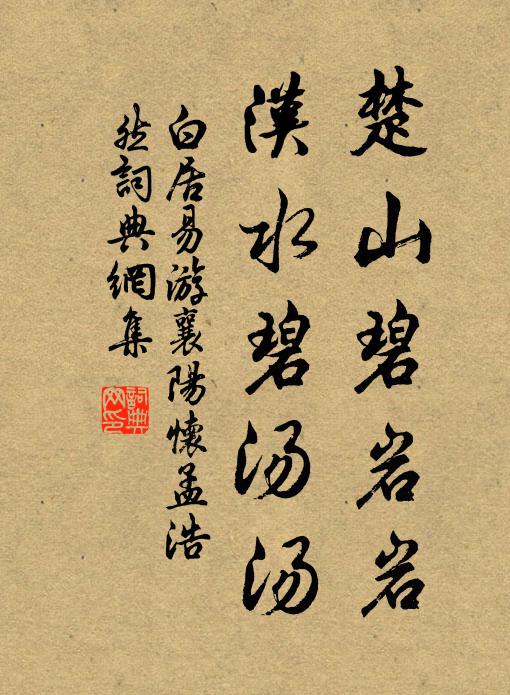 楚山碧岩岩
漢水碧汤汤
白居易游襄陽懷孟浩
然詞典網集
詞典网印